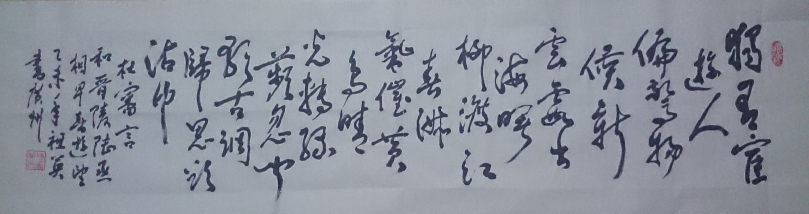 獨有宦
遊人
偏驚物
候新
雲霞出
海曙
柳渡江
春淑
氣催黃
鳥晴
光轉綠
蘋忽聞
歌古調
歸思欲
沾巾
杜審言
和晉陵陸丞
相早春遊望
乙未年祖英
書廣州